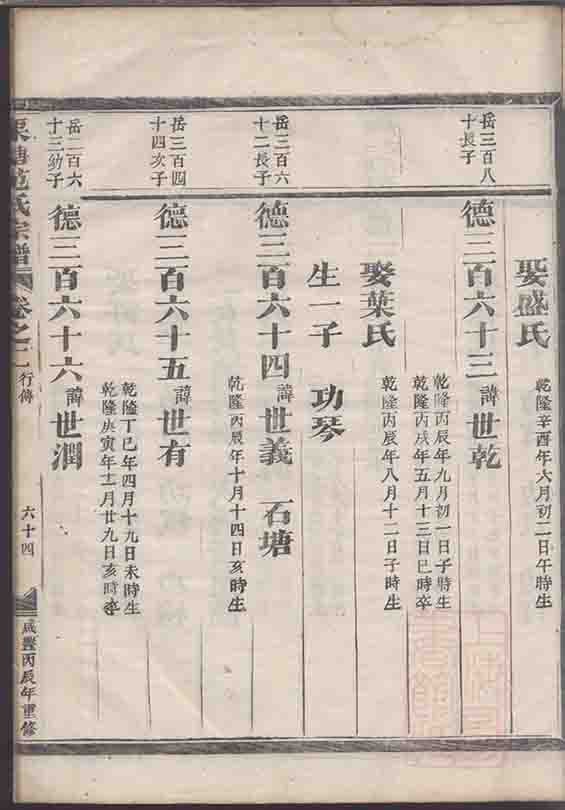 娶盛氏
乾隆辛酉年六月初二日午時生
岳三百八
十長子
德三百六十三 諱世乾
乾隆丙辰年九月初一日子時生
乾隆丙戌年五月十三日巳時卒
娶葉氏
乾隆丙辰年八月十二日子時生
生一子 功琴
岳三百六
十二長子
德三百六十四 諱世義 石塘
乾隆丙辰年十月十四日亥時生
岳三百四
十四次子
德三百六十五 諱世有
乾隆丁巳年四月十九日未時生
乾隆庚寅年十一月廿九日亥時卒
岳二百六
十三幼子
德三百六十六 諱世潤
范氏宗譜 卷之二 行傳 六十四 咸豐丙辰年重修